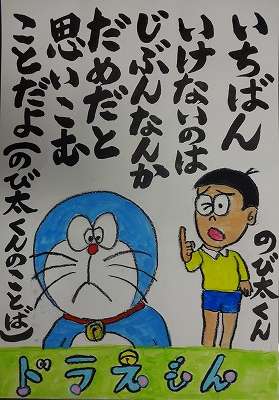 いちばん
いけないのは
じぶんなんか
だめだと
思いこむ
ことだよ(のび太くんのことば)
のび太くん
ドラえもん